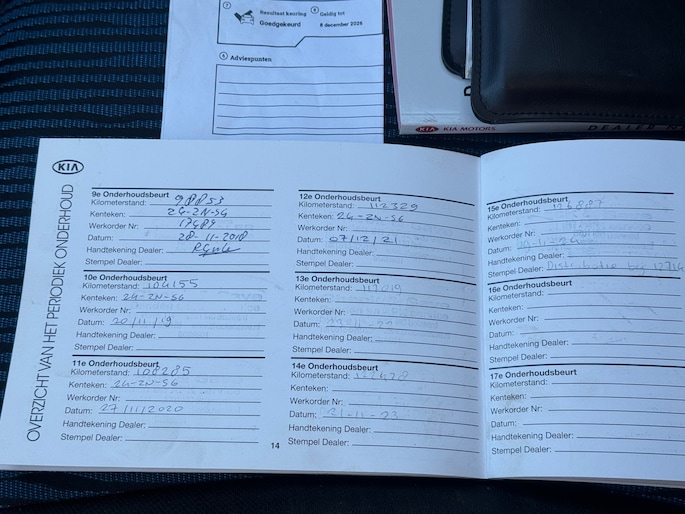 7 Resultaat keuring
Goedgekeurd
8 Geldig tot
8 december 2025
Adviespunten
KIA KIA MOTORS
KIA
OVERZICHT VAN HET PERIODIEK ONDERHOUD
9e Onderhoudsbeurt
Kilometerstand: 98853
Kenteken: 24-ZN-SG
Werkorder Nr:
Datum: 28-11-2018
Handtekening Dealer:
Stempel Dealer:
10e Onderhoudsbeurt
Kilometerstand: 104155
Kenteken: 24-ZN-SG
Werkorder Nr:
Datum: 20/11/19
Handtekening Dealer:
Stempel Dealer:
11e Onderhoudsbeurt
Kilometerstand: 108285
Kenteken: 24-ZN-SG
Werkorder Nr:
Datum: 27/11/2020
Handtekening Dealer:
Stempel Dealer:
12e Onderhoudsbeurt
Kilometerstand: 112329
Kenteken: 24-ZN-SG
Werkorder Nr:
Datum: 07/12/21
Handtekening Dealer:
Stempel Dealer:
13e Onderhoudsbeurt
Kilometerstand: 117019
Kenteken:
Werkorder Nr:
Datum:
Handtekening Dealer:
Stempel Dealer:
14e Onderhoudsbeurt
Kilometerstand:
Kenteken:
Werkorder Nr:
Datum: 21-11-23
Handtekening Dealer:
Stempel Dealer:
14
15e Onderhoudsbeurt
Kilometerstand: 126887
Kenteken:
Werkorder Nr:
Datum:
Handtekening Dealer:
Stempel Dealer: Distributie bij
16e Onderhoudsbeurt
Kilometerstand:
Kenteken:
Werkorder Nr:
Datum:
Handtekening Dealer:
Stempel Dealer:
17e Onderhoudsbeurt
Kilometerstand:
Kenteken:
Werkorder Nr:
Datum:
Handtekening Dealer:
Stempel Dealer: